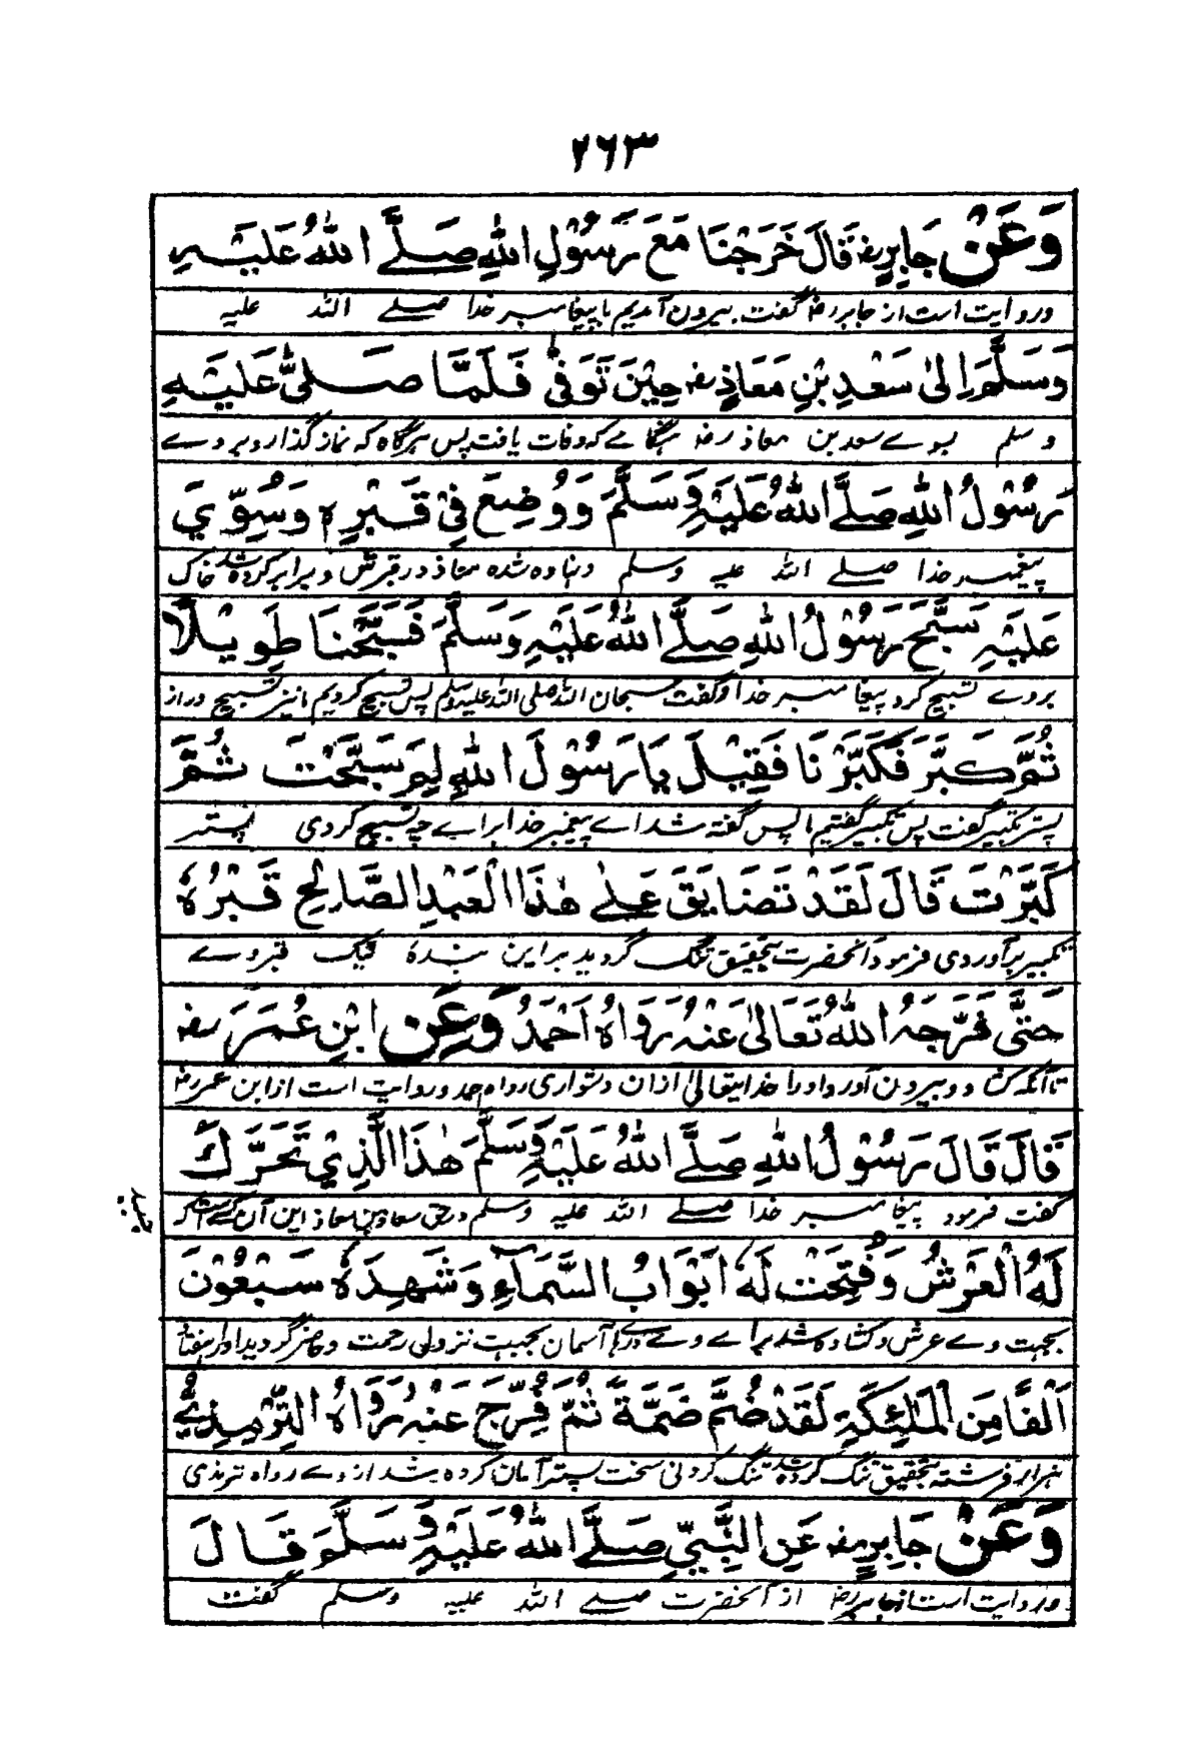 ۲۶۳
وَعَنْ جَابِرٍ رض قَالَ خَرَجْنَا مَعَ رَسُوْلِ اللهِ صَلَّے اللهُ عَلَيْهِ
و روایت است از جابر رض گفت بیرون آمدیم با پیغامبر خدا صلے الله علیه
وَسَلَّمَ اِلىٰ سَعْدِ بْنِ مَعَاذٍ رض حِيْنَ تَوَفّٰى فَلَمَّا صَلىّٰ عَلَيْهِ
و سلم بسوے سعد بن معاذ رض هنگامے که وفات یافت پس هرگاه که نماز گذارد بر وے
رَسُوْلُ اللهِ صَلَّے اللهُ عَلَيْهِ وَسَلَّمَ وَوُضِعَ فِيْ قَبْرِهٖ وَسُوِّيَ
پیغمبر خدا صلے الله علیه وسلم و نهاده شده معاذ در قبرش و برابر کرده شد خاک
عَلَيْهِ سَبَّحَ رَسُوْلُ اللهِ صَلَّے اللهُ عَلَيْهِ وَسَلَّمَ فَسَبَّحْنَا طَوِيْلًا
بر وے تسبیح کرد پیغامبر خدا و گفت سبحان الله صلی الله علیه وسلم پس تسبیح کردیم ما نیز تسبیح دراز
ثُمَّ كَبَّرَ فَكَبَّرْنَا فَقِيْلَ يَا رَسُوْلَ اللهِ لِمَ سَبَّحْتَ ثُمَّ
پستر تکبیر گفت پس تکبیر گفتیم ما پس گفته شد اے پیغمبر خدا براے چه تسبیح کردی پستر
كَبَّرْتَ قَالَ لَقَدْ تَضَايَقَ عَلٰے هٰذَا الْعَبْدِ الصَّالِحِ قَبْرُهٗ
تکبیر برآوردی فرمود آنحضرت بتحقیق تنگ گردید بر این بندۀ نیک قبر وے
حَتّٰى فَرَّجَهُ اللهُ تَعَالىٰ عَنْهُ رَوَاهُ اَحْمَدُ وَعَنِ ابْنِ عُمَرَ رض
تا آنکه کشاد و بیرون آورد او را خدایتعالیٰ ازان دشواری رواه احمد و روایت است از ابن عمر رض
قَالَ قَالَ رَسُوْلُ اللهِ صَلَّے اللهُ عَلَيْهِ وَسَلَّمَ هٰذَا الَّذِيْ تَحَرَّكَ
گفت فرمود پیغامبر خدا صلے الله علیه وسلم در حق سعد بن معاذ این آن کسے است که
لَهُ الْعَرْشُ وَفُتِحَتْ لَهٗ اَبْوَابُ السَّمَآءِ وَشَهِدَهٗ سَبْعُوْنَ
بجهت وے عرش و کشاده شد براے وے درهاے آسمان بجهت نزول رحمت و حاضر گردید او را هفتاد
اَلْفًا مِنَ الْمَلٰئِكَةِ لَقَدْ ضُمَّ ضَمَّةً ثُمَّ فُرِّجَ عَنْهُ رَوَاهُ التِّرْمِذِيُّ
هزار از فرشته بتحقیق تنگ کرده شد تنگ کردنی سخت پستر آسان کرده شد از وے رواه ترمذی
وَعَنْ جَابِرٍ رض عَنِ النَّبِيِّ صَلَّے اللهُ عَلَيْهِ وَسَلَّمَ قَالَ
و روایت است از جابر رض از آنحضرت صلے الله علیه وسلم گفت